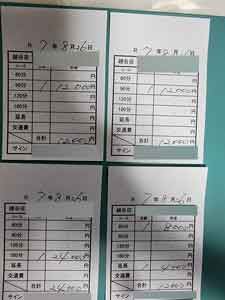 月 7 年 8 月 26 日
越谷店
コース
60分 円
90分 1 12,000 円
120分 円
180分 円
延長 円
交通費 円
合計 12,000 円
サイン
7 年
越谷店
コース
60分 円
90分 1 12,000 円
120分 円
180分 円
延長 円
交通費 円
合計 12000 円
サイン
7 年 8 月 26 日
越谷店
コース
60分 円
90分 円
120分 円
180分 1 24000 円
延長 円
交通費 円
合計 24,000 円
7 年 8 月 26 日
越谷店
コース
60分 1 8000 円
90分 円
120分 円
180分 円
延長 1 4000 円
交通費 円
合計 12000 円
サイン